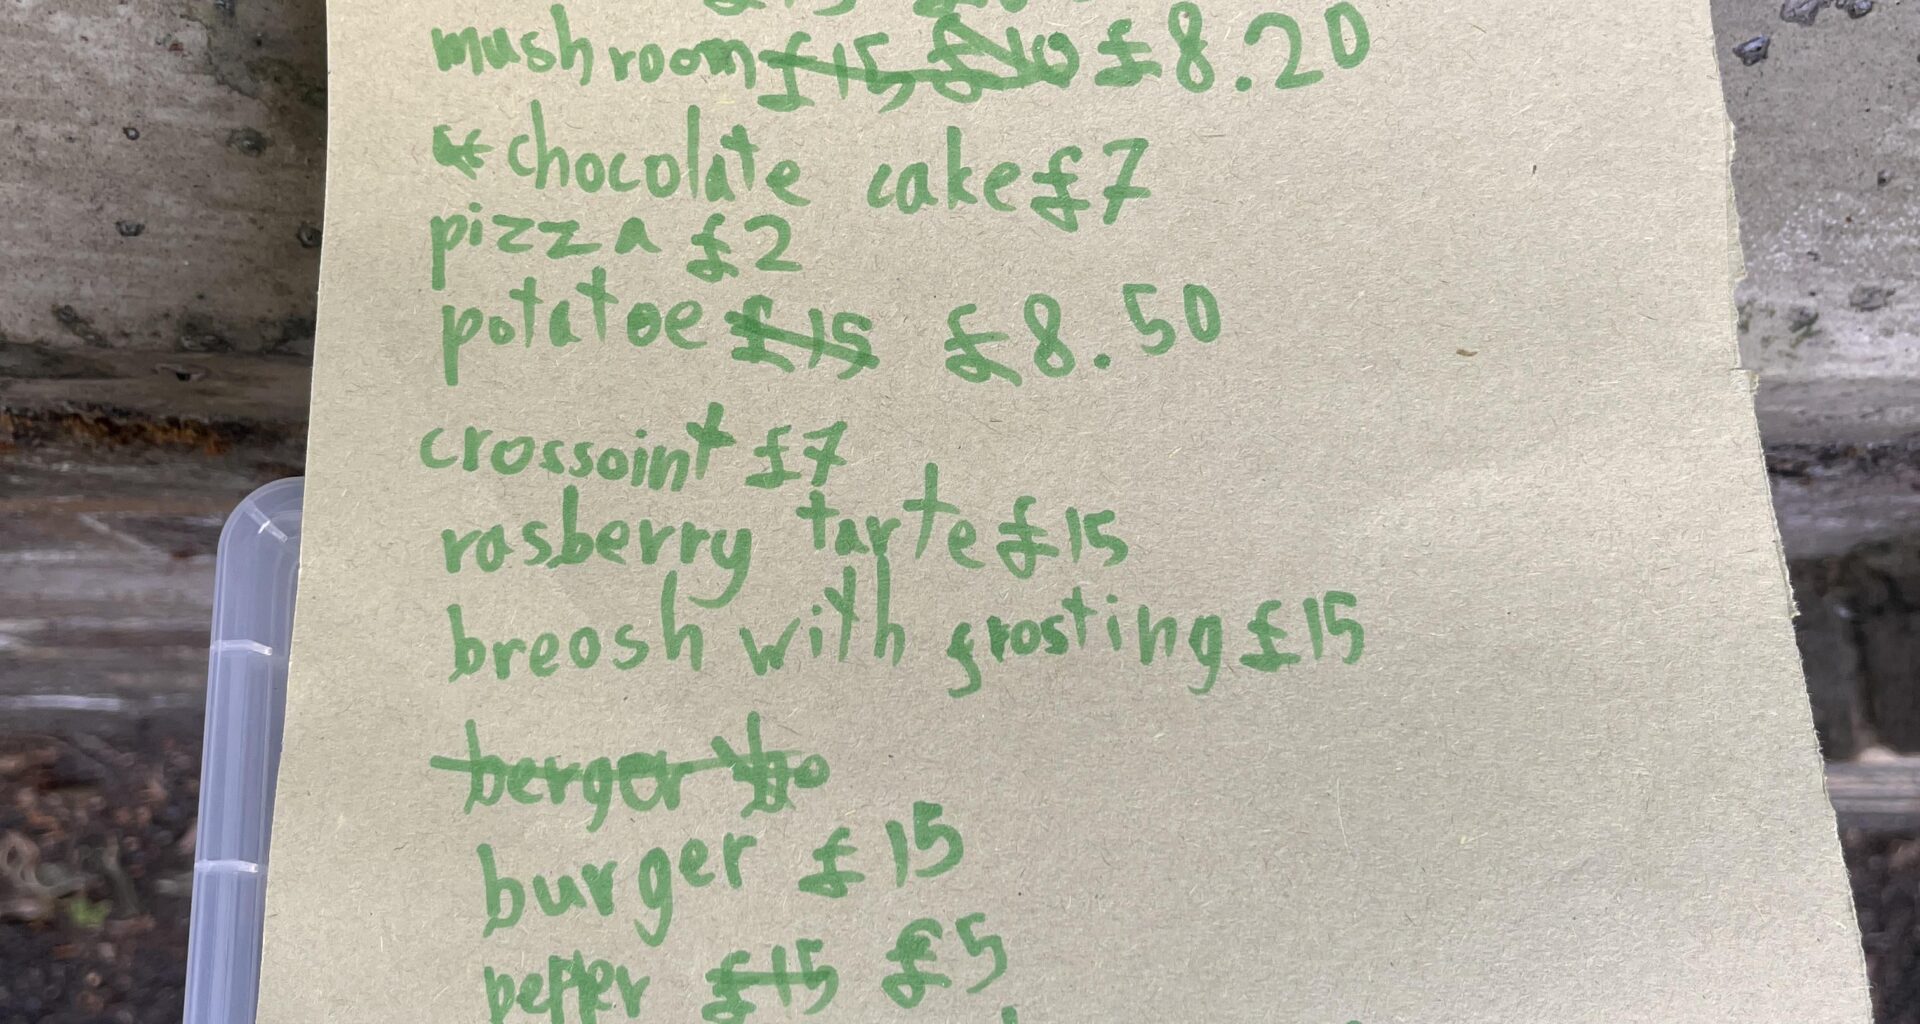 £15
mushroom £15 £10 £8.20
chocolate cake £7
pizza £2
potatoe £15 £8.50
crossoint £7
rasberry tarte £15
breosh with frosting £15
berger
burger £15
pepper £15 £5